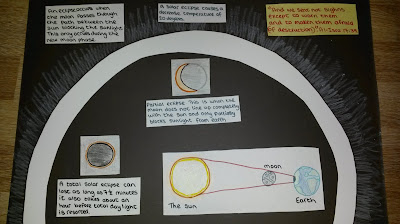 An eclipse occurs when
the moon passes though
the path between the
sun blocking the sunlight.
This only occurs during the
new moon phase.
A solar eclipse causes a
decrease temperature of
20 degrees.
"And we send not signs
except to warn them
and to make them afraid
of destruction)"
Partial eclipse This is when the
moon does not line up completely
with the sun and only partially
blocks sunlight from earth
A total solar eclipse can
last as long as 7½ minutes
it also takes about an
hour before total daylight
is resorted.
The Sun
moon
Earth